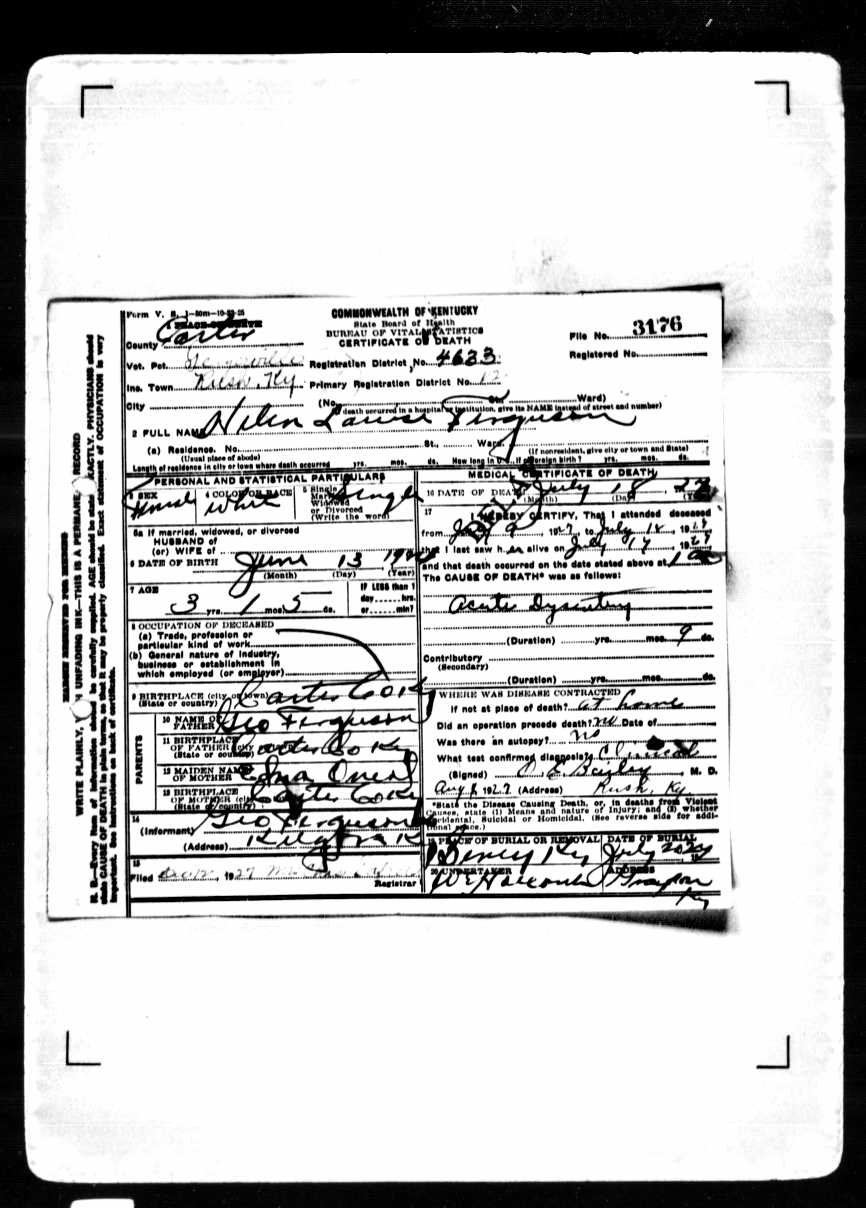 Form V. S. 1-50m-10-
COMMONWEALTH OF KENTUCKY
State Board of Health
BUREAU OF VITAL STATISTICS
CERTIFICATE OF DEATH
File No. 3176
Registered No.
1 PLACE OF DEATH
County Carter
Vot. Pct.
Registration District No. 4633
Inc. Town Rush, Ky. Primary Registration District No.
City (No. St. Ward)
(If death occurred in a hospital or institution, give its NAME instead of street and number)
2 FULL NAME Helen Louise Ferguson
(a) Residence. No. St., Ward.
(Usual place of abode) (If nonresident, give city or town and State)
Length of residence in city or town where death occurred yrs. mos. ds. How long in U. S., if of foreign birth? yrs. mos. ds.
PERSONAL AND STATISTICAL PARTICULARS
3 SEX Female
4 COLOR OR RACE White
5 Single Married Widowed or Divorced (Write the word) Single
5a If married, widowed, or divorced
HUSBAND of
(or) WIFE of
6 DATE OF BIRTH June 13
(Month) (Day) (Year)
7 AGE
3 yrs. 1 mos. 5 ds.
IF LESS than 1
day hrs.
or min?
8 OCCUPATION OF DECEASED
(a) Trade, profession or
particular kind of work
(b) General nature of industry,
business or establishment in
which employed (or employer)
9 BIRTHPLACE (city or town)
(State or country) Carter Co Ky
PARENTS
10 NAME OF
FATHER Geo Ferguson
11 BIRTHPLACE
OF FATHER (city
(State or country) Carter Co Ky
12 MAIDEN NAME
OF MOTHER Edna Oneal
13 BIRTHPLACE
OF MOTHER (city
(State or country) Carter Co Ky
14
(Informant) Geo Ferguson
(Address)
15
Filed 1927
Registrar
MEDICAL CERTIFICATE OF DEATH
16 DATE OF DEATH July 18, 27
(Month) (Day) (Year)
17
I HEREBY CERTIFY, That I attended deceased
from 1927, to July 18, 1927
that I last saw her alive on July 17, 1927
and that death occurred on the date stated above at 1
The CAUSE OF DEATH* was as follows:
Acute Dysentery
(Duration) yrs. mos. 9 ds.
Contributory
(Secondary)
(Duration) yrs. mos. ds.
WHERE WAS DISEASE CONTRACTED
If not at place of death? at home
Did an operation precede death? no Date of
Was there an autopsy? no
What test confirmed diagnosis? Clinical
(Signed) Bailey M. D.
Aug 1927 (Address) Rush, Ky.
*State the Disease Causing Death, or, in deaths from Violent
Causes, state (1) Means and nature of Injury; and (2) whether
Accidental, Suicidal or Homicidal. (See reverse side for additional space.)
19 PLACE OF BURIAL OR REMOVAL DATE OF BURIAL
Denny Ky July 20
20 UNDERTAKER ADDRESS
Holcomb Grayson
Ky
MARGIN RESERVED FOR BINDING
WRITE PLAINLY, WITH UNFADING INK—THIS IS A PERMANENT RECORD
N. B.—Every item of information should be carefully supplied. AGE should be stated EXACTLY. PHYSICIANS should
state CAUSE OF DEATH in plain terms, so that it may be properly classified. Exact statement of OCCUPATION is very
important. See instructions on back of certificate.